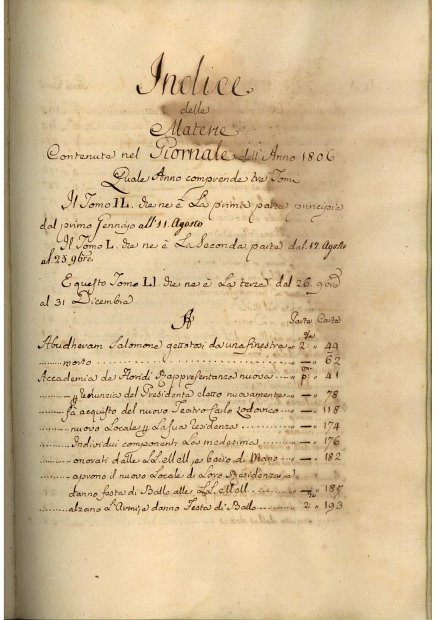 Indice
delle
Materie
Contenute nel Giornale dell'Anno 1806
Quale Anno comprende tre Tomi
Il Tomo IL. che ne è La prima parte principia
dal primo Gennajo all'11. Agosto
Il Tomo L. che ne è La Seconda parte dal 12. Agosto
al 25. 9bre.
E questo Tomo LI. che ne è La terza dal 26. 9bre
al 31 Dicembre
A Parte Carte
Abudheram Salomone gettatosi da una finestra 2. 49
morto 62
Accademia de Floridi Rappresentanza nuova p. 41
Renunzia del Presidente eletto nuovamente 78
fà acquisto del nuovo Teatro Carlo Lodovico 118
nuovo Locale La sua Residenza 174
Individui componenti La medesima 176
onorati dalle LL. MM. bacio di Mano 182
aprono il nuovo Locale di Loro Residenza e
danno festa di Ballo alle LL. MM. 185
alzano l'Armi, e danno Festa di Ballo 2. 193